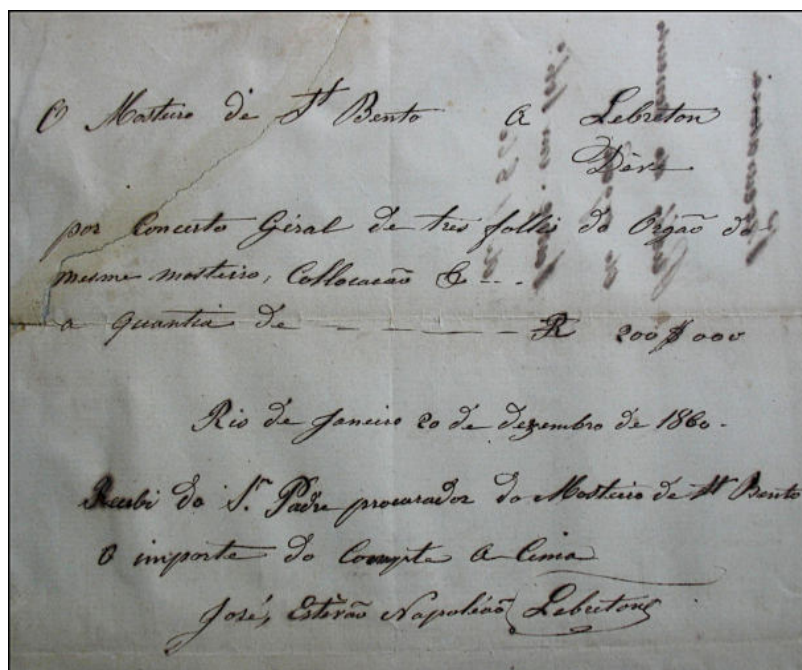 O Mosteiro de St Bento a Lebreton
Deve
por Concerto Géral de tres folles do Orgão do
mesme mosteiro, Collocacão & - - -
a quantia de — — — — — R 200$000
Rio de Janeiro 20 de dezembro de 1860.
Recibi do Sr. Padre procurador do Mosteiro de St Bento
O importe do Compte a Cima
José, Estêvão Napoleão Lebreton